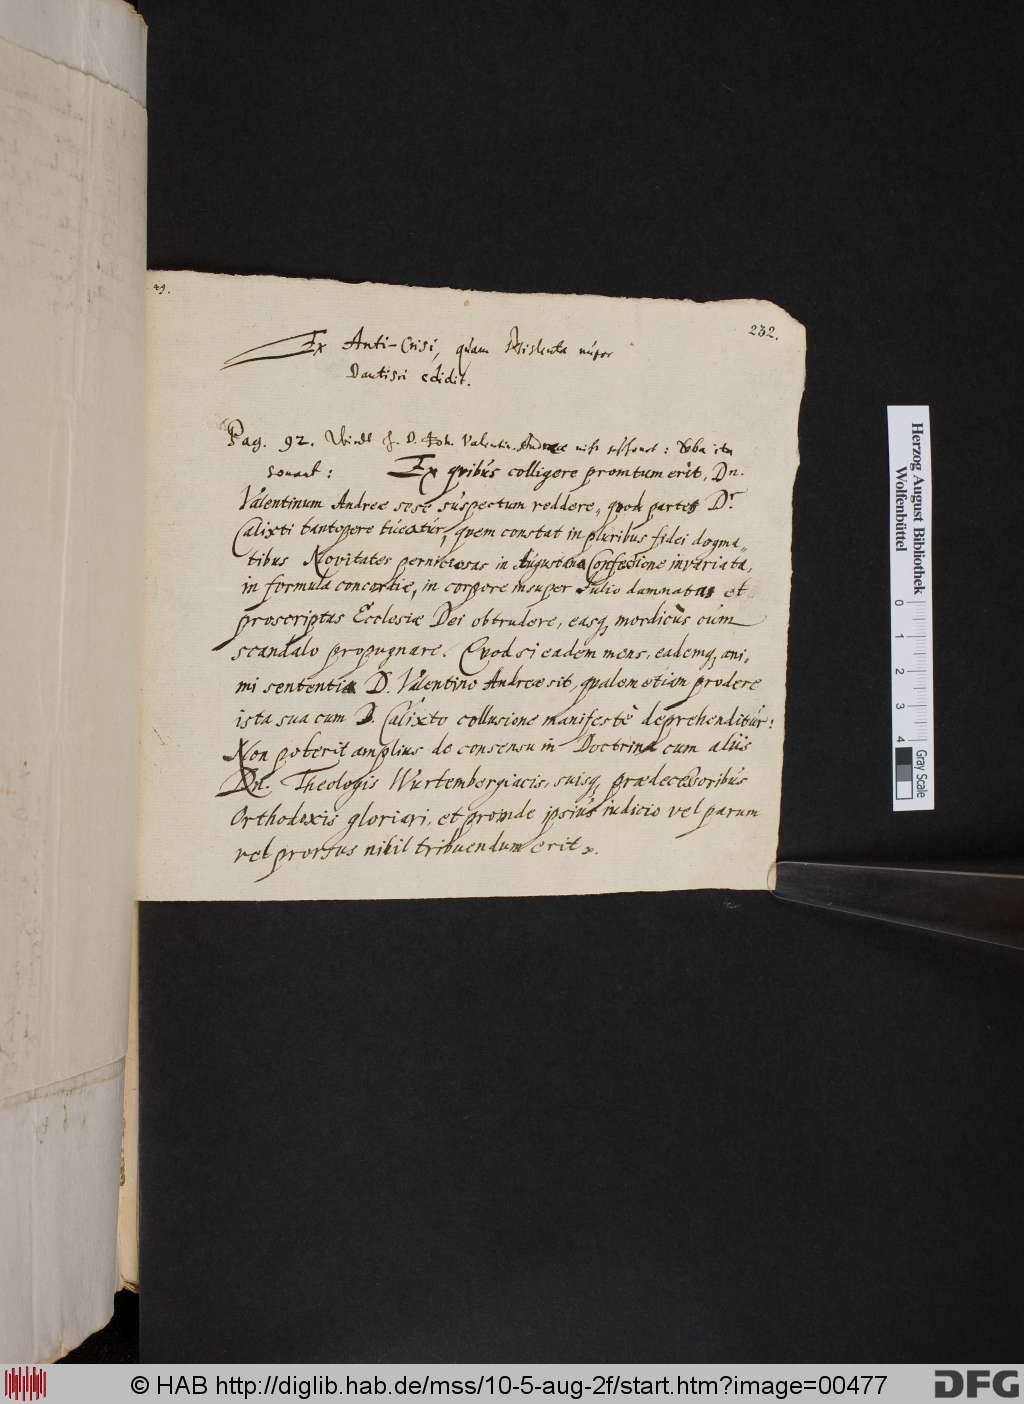 232.
Ex Anti-Crisi, quam Mislenta nuper
Dantisci edidit.
Pag. 92. Wirdt H. D. Joh. Valentin. Andreae : Verba ita
sonant: Ex quibus colligere promtum erit, Dn.
Valentinum Andreæ sese suspectum reddere, quod partes Dr.
Calixti tantopere tueatur, quem constat in pluribus fidei dogma„
tibus Novitates perniciosas in Augustana Confessione invariata,
in formula concordiæ, in corpore insuper Julio damnatas et
proscriptas Ecclesiæ Dei obtrudere, easq, mordicùs cúm
scandalo propugnare. Quod si eadem mens, eademq, ani,
mi sententia D. Valentino Andreæ sit, qualem etiam prodere
ista sua cum D. Calixto collusione manifestè deprehenditúr:
Non poterit amplius de consensu in Doctrina cum aliis
Dn. Theologis Wurtembergiacis, suisq, prædecessoribús
Orthodoxis gloriari, et proinde ipsius iudicio vel parum
vel prorsus nihil tribuendum erit
Herzog August Bibliothek
Wolfenbüttel
0 1 2 3 4
Gray Scale
© HAB http://diglib.hab.de/mss/10-5-aug-2f/start.htm?image=00477
DFG